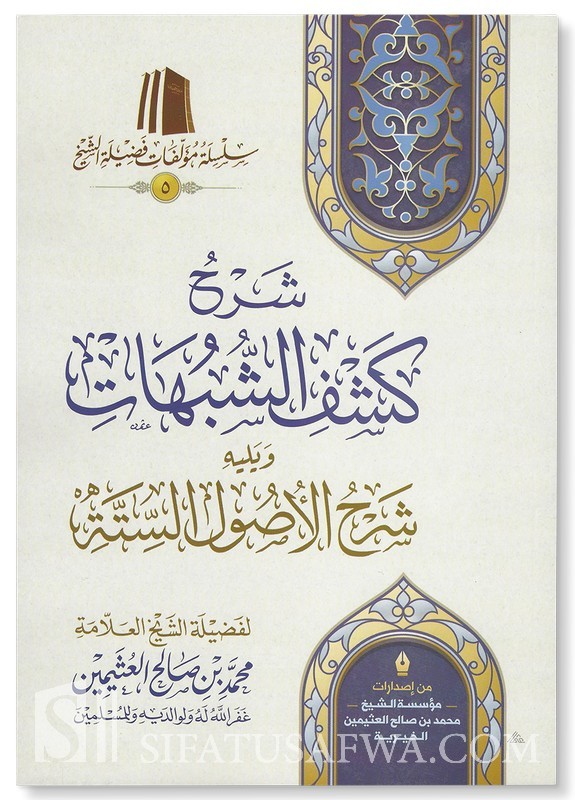 سلسلة مؤلفات فضيلة الشيخ
٥
شَرْحُ
كَشْفِ الشُّبُهَاتِ
وَيَلِيهِ
شَرْحُ الأُصُولِ السِّتَّةِ
لفَضِيلَةِ الشَّيْخِ العَلَّامَةِ
محمّد بن صالح العثيمين
غفر الله له ولوالديه وللمسلمين
من إصدارات
مؤسسة الشيخ
محمد بن صالح العثيمين
الخيرية
SIFATUSAFWA.COM